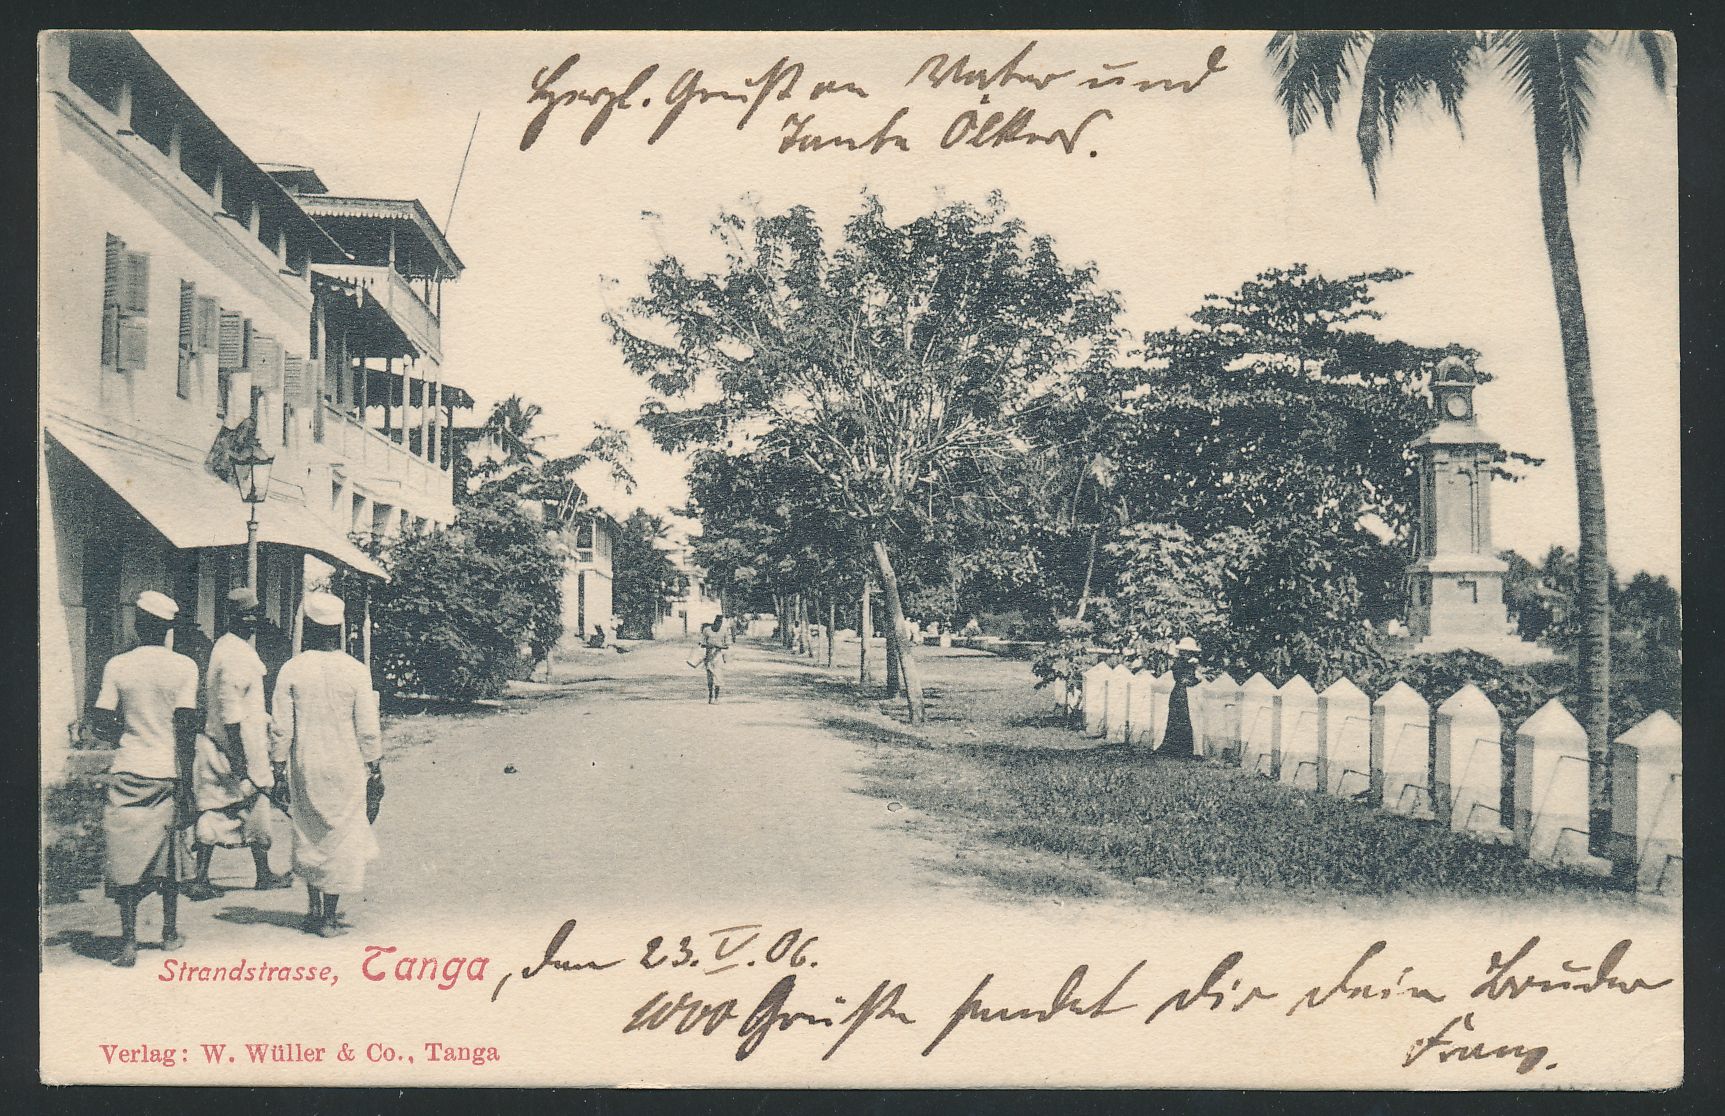 Herzl. Gruß an Vater und
Tante Ölkers.
Strandstrasse, Tanga, den 23.V.06.
1000 Grüße sendet Dir Dein Bruder
Franz.
Verlag: W. Wüller & Co., Tanga